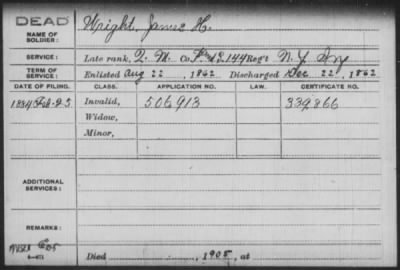 DEAD
NAME OF SOLDIER: Wright, James H.
SERVICE: Late rank, Q. M. Co. 144 Reg't N.Y. Inf
TERM OF SERVICE: Enlisted Aug 22, 1862 Discharged Dec 22, 1862
DATE OF FILING. CLASS. APPLICATION NO. LAW. CERTIFICATE NO.
1884 Feb. 25 Invalid, 506,913 339,866
Widow,
Minor,
ADDITIONAL SERVICES:
REMARKS:
Died , 1905, at